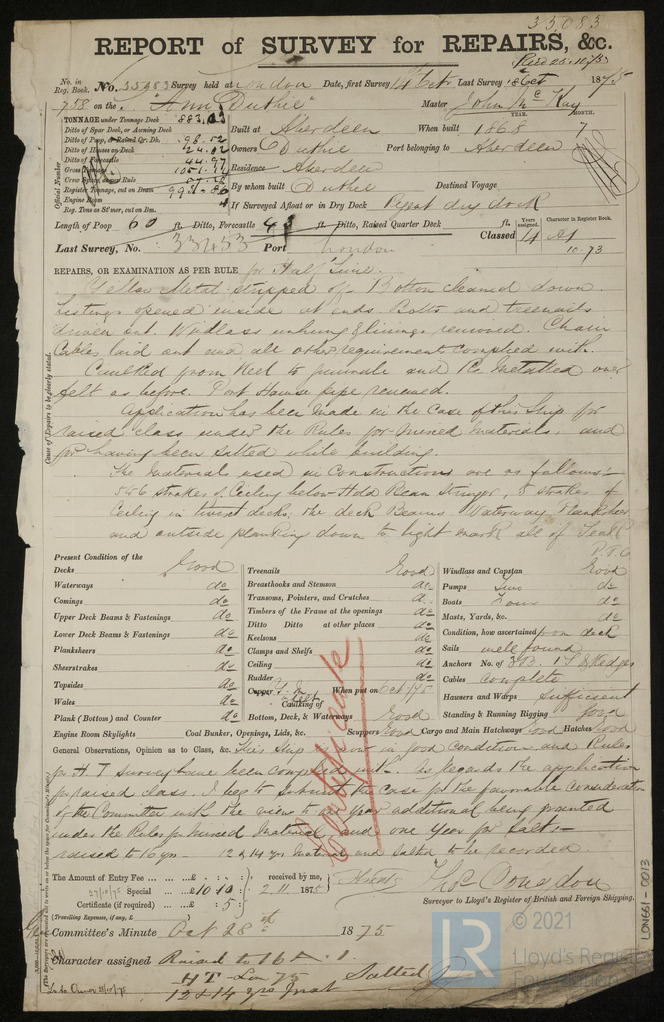 35083
REPORT of SURVEY for REPAIRS, &c.
No. in Reg. Book. No. Survey held at London Date, first Survey 14 Octr Last Survey 18 Oct 1875
758 on the "Ann Duthie" Master John McKay
TONNAGE under Tonnage Deck 883.03
Ditto of Spar Deck, or Awning Deck
Ditto of Poop, or Raised Qr. Dk. 98.52
Ditto of Houses on Deck 24.82
Ditto of Forecastle 44.97
Gross
Crew Space, as per Rule
Register Tonnage, cut on Beam
Engine Room
Reg. Tons as St'mer, cut on Bm.
Official Number
YEAR. MONTH.
Built at Aberdeen When built 1868 7
Owners Duthie Port belonging to Aberdeen
Residence Aberdeen
By whom built Duthie Destined Voyage
If Surveyed Afloat or in Dry Dock Regent dry dock
Length of Poop 60 ft. Ditto, Forecastle 43 ft. Ditto, Raised Quarter Deck ft.
Years assigned. Character in Register Book.
Classed 14 A1
10.73
Last Survey, No. 33453 Port London
REPAIRS, OR EXAMINATION AS PER RULE for Half Time.
Yellow Metal stripped off Bottom cleaned down
Listings opened inside at ends. Bolts and treenails
driven out. Windlass unhung & linings removed. Chain
Cables laid out and all other requirements complied with.
Caulked from Keel to gunwale and Re metalled over
felt as before. Port Hawse pipe renewed.
Application has been made in the Case of this Ship for
raised class under the Rules for Mixed Materials, and
for having been Salted while building.
The Materials used in Construction are as follows:-
5 & 6 strakes of Ceiling below Hold Beam Stringer, 5 strakes of
Ceiling in twixt decks, the deck Beams Waterway, Plansheer
and outside planking down to light mark all of Teak
P.T.O
Cause of Repairs to be clearly stated.
Present Condition of the
Decks Good
Waterways do
Comings do
Upper Deck Beams & Fastenings do
Lower Deck Beams & Fastenings do
Planksheers do
Sheerstrakes do
Topsides do
Wales do
Plank (Bottom) and Counter do
Engine Room Skylights
Treenails Good
Breasthooks and Stemson do
Transoms, Pointers, and Crutches do
Timbers of the Frame at the openings do
Ditto Ditto at other places do
Keelsons do
Clamps and Shelfs do
Ceiling do
Rudder do
Copper Y. M. Felt When put on Oct /75
Caulking of Bottom, Deck, & Waterways Good
Coal Bunker, Openings, Lids, &c. Scuppers Good
Windlass and Capstan Good
Pumps do
Boats Four do
Masts, Yards, &c. do
Condition, how ascertained from deck
Sails well found
Anchors No. of 3 B. 1 S & Kedges
Cables Complete
Hausers and Warps Sufficient
Standing & Running Rigging Good
Cargo and Main Hatchways Good Hatches Good
Certificate
General Observations, Opinion as to Class, &c. This Ship is now in good Condition and Rules
for H T Survey have been complied with. As Regards the application
for raised class. I beg to submit the case for the favorable consideration
of the Committee with the view to a Year additional being granted
under the Rules for Mixed Material, and one Year for Salt.
raised to 16 yrs 12 & 14 yrs Material and Salted to be recorded
The Amount of Entry Fee ... ... £ : :
27/10/75 Special ... ... £10.10 :
Certificate (if required) ... £ : 5 :
received by me,
2.11.1875
(Travelling Expenses, if any, £
Thos Congdon
Surveyor to Lloyd's Register of British and Foreign Shipping.
Committee's Minute Oct 28th 1875
Character assigned Raised to 16 A.1
HT - Lon 75 Salted
12 & 14 yrs Mat
LON661-0013
© 2021
LR
Lloyd's Register
Foundation